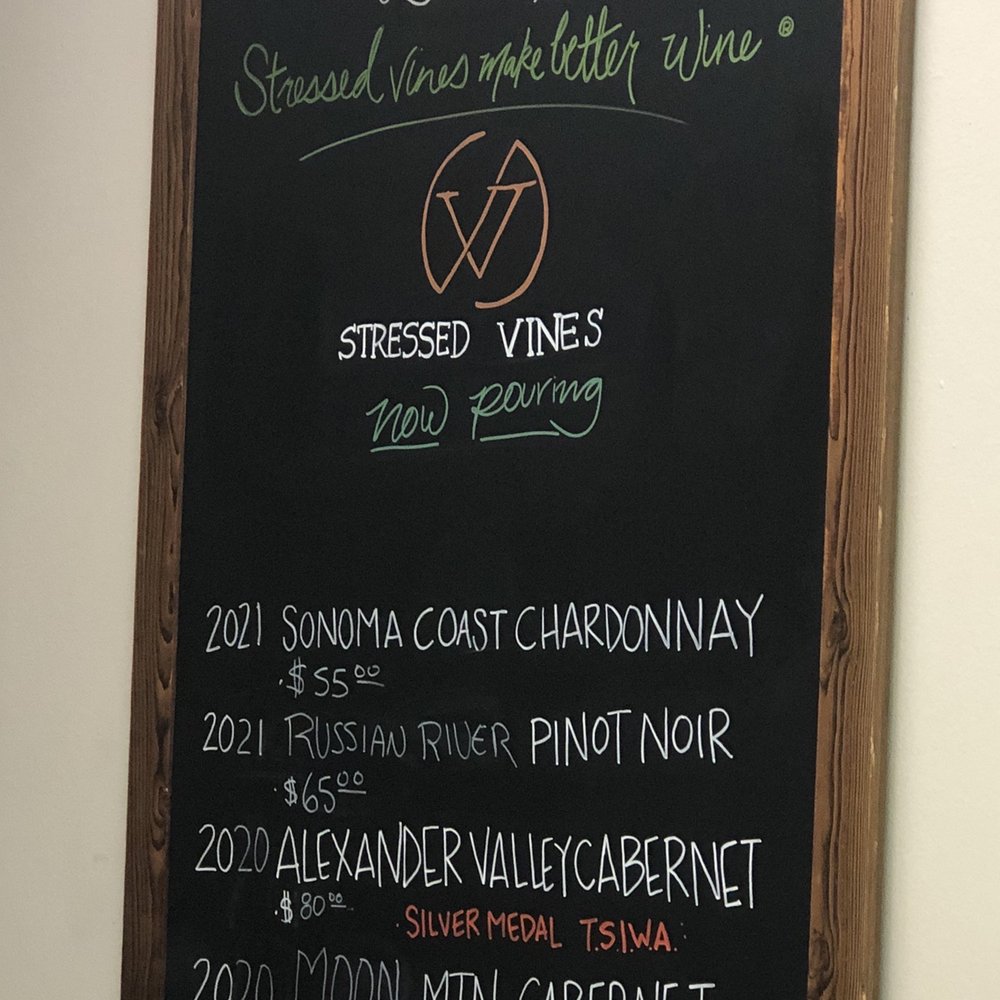 Stressed Vines make better Wine ®
STRESSED VINES
now pouring
2021 SONOMA COAST CHARDONNAY
·$55.00
2021 RUSSIAN RIVER PINOT NOIR
·$65.00
2020 ALEXANDER VALLEY CABERNET
·$80.00
·SILVER MEDAL T.S.I.W.A.·
2020 MOON MTN CABERNET